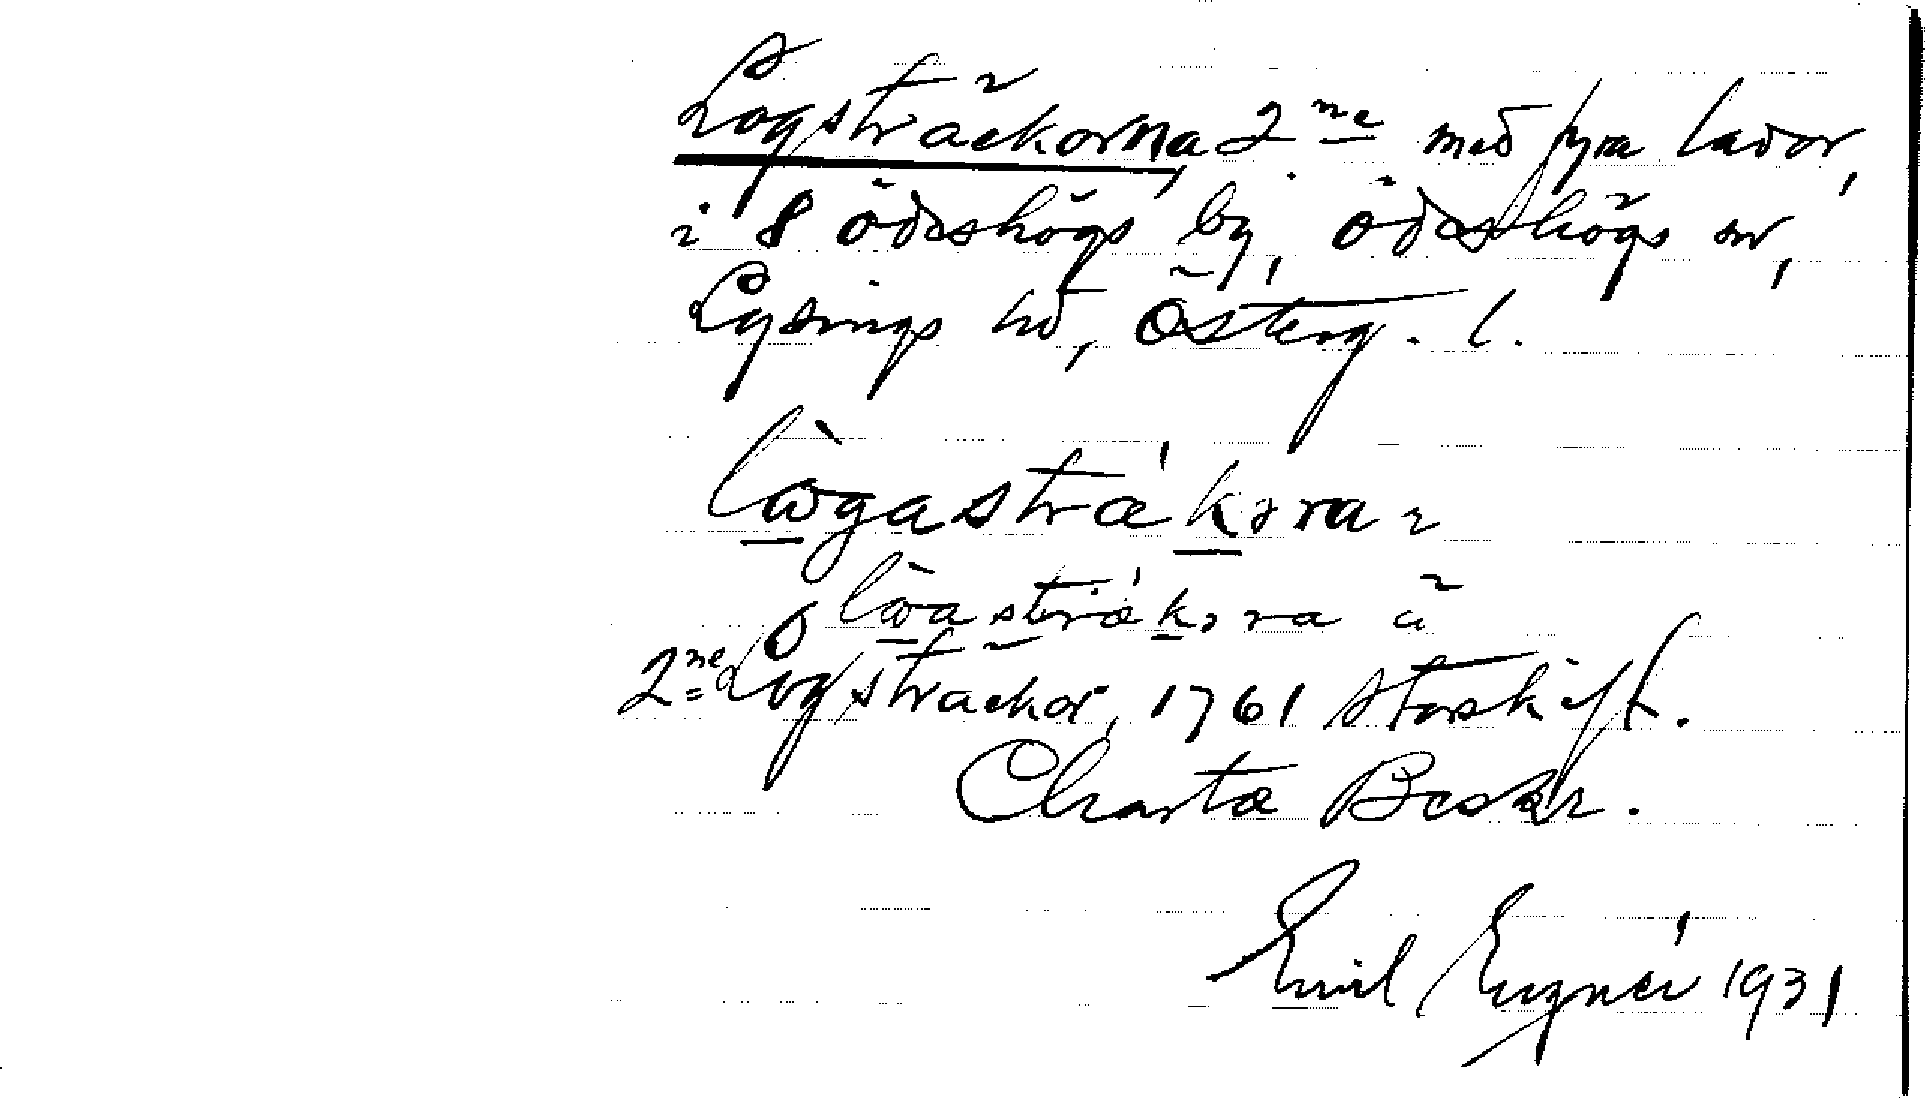 Logsträckorna, 2ne med fyra lador,
i 8 ödeshögs by, ödeshögs sn,
Lysings hd, Österg. l.
lògastrǽkɔra
lòastrǽkɔra
2ne Logsträckor, 1761 storskift.
Charta Beskr.
Emil 1931